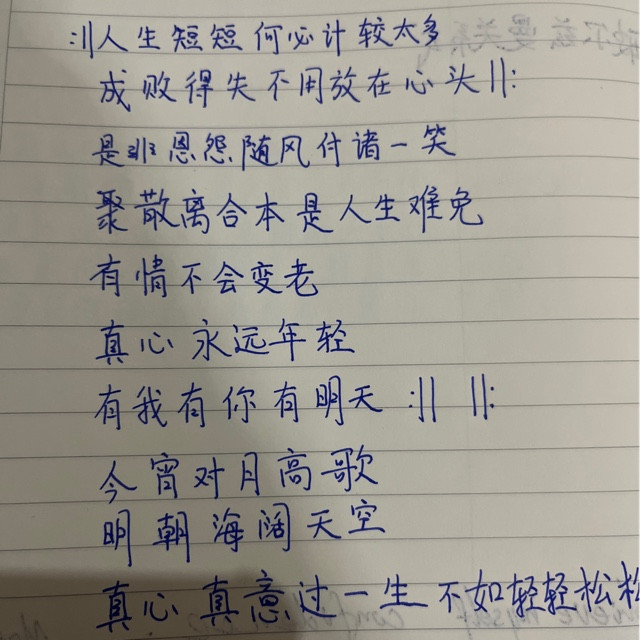 :||人生短短何必计较太多
成败得失不用放在心头||:
是非恩怨随风付诸一笑
聚散离合本是人生难免
有情不会变老
真心永远年轻
有我有你有明天 :|| ||:
今宵对月高歌
明朝海阔天空
真心真意过一生 不如轻轻松松